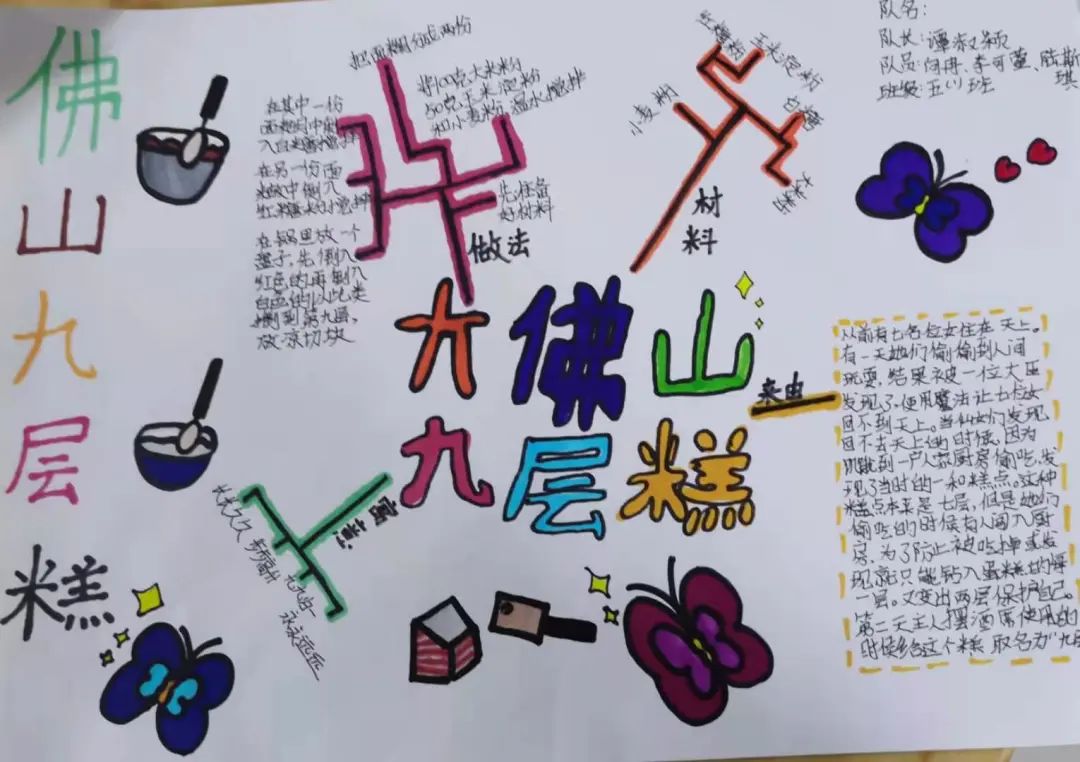 佛山九层糕
把面糊分成两份
将100克大米粉
50克玉米淀粉
和小麦粉,温水搅拌
在其中一份
面糊中倒
入白糖搅拌
在另一份面
糊中倒入
红糖水搅拌
在锅里放一个
盘子,先倒入
红色的再倒入
白色的以此类
推到第九层,
放凉切块
先准备
好材料
做法
小麦粉
玉米淀粉
白糖
材
料
队名:
队长:谭淑颖
队员:何冉、李可萱、陆斯
琪
班级:五(1)班
大佛山
九层糕
来由
从前有七名仙女住在天上。
有一天她们偷偷到人间
玩耍,结果被一位大巫
发现了,便用魔法让七仙女
回不到天上。当仙女们发现
回不去天上的时候,因为
饥饿到一户人家厨房偷吃,发
现了当时的一种糕点。这种
糕点本来是七层,但是她们
偷吃的时候有人闯入厨
房,为了防止被吃掉或发
现就只能钻入蛋糕的每
一层。又变出两层保护自己。
第二天主人摆酒席使用的
时候给这个糕,取名为“九层
寓意:
长长久久
步步高升
永永远远